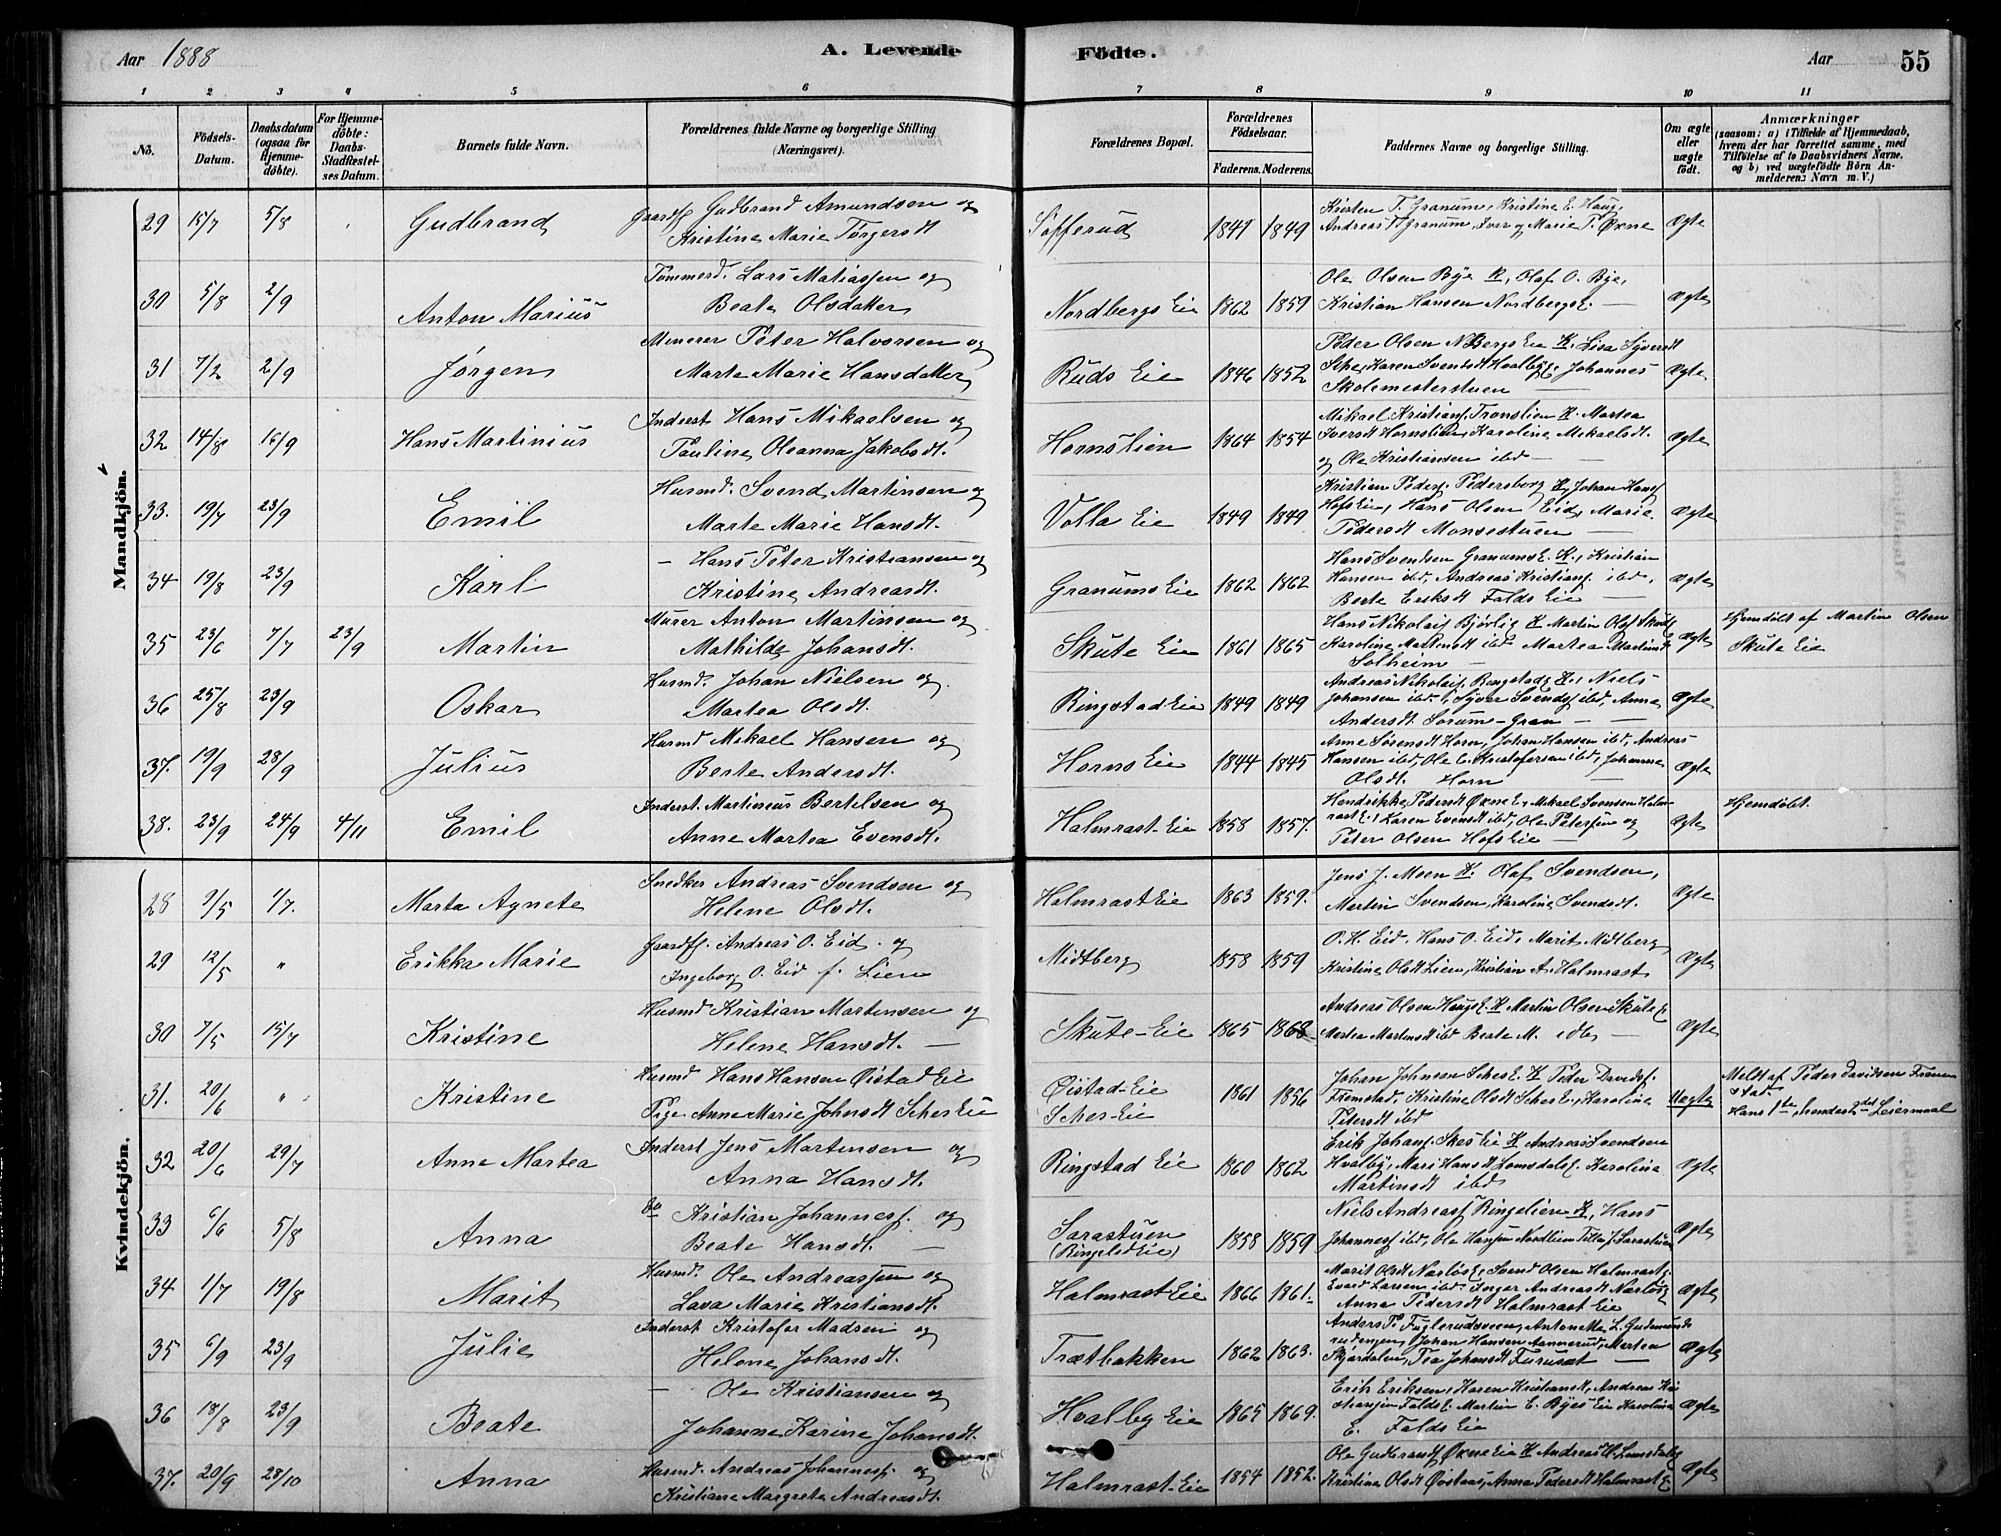 Aar 1888 A. Levende Födte. Aar 55
1 2 3 4 5 6 7 8 9 10 11
No.
Födsels-Datum.
Daabsdatum (ogsaa for Hjemme-döbte).
For Hjemme-döbte: Daabs-Stadfæstel-ses Datum.
Barnets fulde Navn.
Forældrenes fulde Navne og borgerlige Stilling (Næringsvei).
Forældrenes Bopæl.
Forældrenes Födselsaar.
Faderens. Moderens.
Faddernes Navne og borgerlige Stilling.
Om ægte eller uægte födt.
Anmærkninger (saasom: a) i Tilfælde af Hjemmedaab, hvem der har forrettet samme, med Tilföielse af to Daabsvidners Navne, og b) ved uægtefödte Börn An-melderens Navn m. V.)
Mandkjön.
29 15/7 5/8 Gudbrand Gaardf. Gudbrand Amundsen og Søfferud 1841 1849 Kristen T. Granum, Kristine E. Haug, Ægte
Kristine Marie Torgersdt Andreas T. Granum, Iver og Marie T. Øxne
30 5/8 2/9 Anton Marius Tømmerd. Lars Matiassen og Nordbergs Eie 1862 1859 Ole Olsen Bye K, Olaf O. Bye, Ægte
Beate Olsdatter Kristian Hansen NordbergsE.
31 7/2 2/9 Jørgen Minerer Peter Halvorsen og Ruds Eie 1846 1852 Peder Olsen NBergs Eie K. Lisa Syversdt Ægte
Marte Marie Hansdatter Karen Svendsdt HvalbyE, Johannes
Skolemesterstuen
32 14/8 16/9 Hans Martinius Inderst Hans Mikaelsen og Hornslien 1864 1854 Mikael Kristians. Tronslien K. Martea Ægte
Pauline Oleanna Jakobsdt. Iversdt Hornslien, Karoline Mikaelsdt.
og Ole Kristiansen ibd
33. 19/7 23/9 Emil Husmd. Svend Martinsen og Volla Eie 1849 1849 Kristian Peders. Pedersborg K, Johan Hans. Ægte
Marte Marie Hansdt. Hofs Eie, Hans Olsen Eid, Marie
Pedersdt Monsestuen
34 19/8 23/9 Karl - Hans Peter Kristiansen og Granums Eie 1862 1862 Hans Svendsen GranumsE. K., Kristian Ægte
Kristine Andreasdt. Hansen ibd, Andreas Kristians. ibd,
Berte Eriksdt Falds Eie
35 23/6 7/7 23/9 Martin Murer Anton Martinsen og Skute Eie 1861 1865 Hans Nikolais. Bjørlig K Martin Olss Skute Ægte Hjemdøbt af Martin Olsen
Mathilde Johansdt. Karoline Martinsdt ibd Martea Martinsdt Skute Eie
Solheim
36 25/8 23/9 Oskar Husmd. Johan Nielsen og Ringstad Eie 1849 1849 Andreas Nikolais. Ringstad K., Niels Ægte
Martea Olsdt. Johansen ibd, Syver Svends. ibd, Anne
Andersdt. Sorum-Gran
37. 19/9 28/9 Julius Husmd Mikael Hansen og Horns Eie 1844 1845 Anne Sørensdt Horn, Johan Hansen ibd, Andreas Ægte
Berte Andersdt. Hansen ibd, Ole C. Kristofersen ibd, Johanne
Olsdt. Horn
38. 23/9 24/9 4/11 Emil Inderst. Martinius Bertelsen og Halmrast-Eie 1858 1857. Hendrikke Pedersdt ØxneE, Mikael Svensen Halm- Ægte Hjemdøbt.
Anne Martea Evensdt. rastE, Karen Evensdt ibd, Ole Petersen og
Peter Olsen Hofs Eie
Kvindekjön.
28 9/5 1/7. Marta Agnete Snedker Andreas Svendsen og Halmrast Eie 1863 1859. Jens J. Moen K. Olaf Svendsen, Ægte
Helene Olsdt. Martin Svendsen, Karoline Svendsdt.
29 12/5 " Erikka Marie Gaardf. Andreas O. Eid. og Midtberg 1858 1859 O. H. Eid, Hans O. Eid, Marit Midtberg Ægte
Ingeborg O. Eid f. Lien Kristine Olsdt Lien, Kristian A. Halmrast
30 7/5 15/7 Kristine Husmd Kristian Martensen og Skute-Eie 1865 1868 Andreas Olsen HaugsE. K Martin Olsen Skute E Ægte
Helene Hansdt. Martea Martinsdt ibd Beate M. ibd
31. 20/6 " Kristine Husmd Hans Hansen Øistad Eie Øistad-Eie 1861 1856 Johan Johnsen SchesE. K Peder Davids. Uægte Meldt af Peder Davidsen Fremstad.
Pige Anne Marie Johnsdt Sches Eie Sches-Eie Fremstad, Kristine Olsdt SchesE, Karoline Hans 1ste, hendes 2det Leiermaal
Petersdt ibd
32 20/6 29/7 Anne Martea Inderst Jens Martensen og Ringstad Eie 1860 1862 Erik Johans. Skes Eie K Andreas Svendsen Ægte
Anna Hansdt. Hvalby, Mari Hansdt LomsdalsE. Karoline
Martinsdt ibd
33 6/6 5/8 Anna do Kristian Johanness. og Sarastuen 1858 1859 Niels Andreass Ringelien K, Hans Ægte
Beate Hansdt. (Ringelid Eie) Johanness ibd, Ole Hansen Nordlien
34 1/7 19/8 Marit Husmd. Ole Andreassen og Halmrast Eie 1866 1861. Marit Olsdt, Svend Olsen Halmrast, Ægte
Lava Marie Kristiansdt. Larsen ibd Inger Andreasdt
Anna Pedersdt Halmrast Eie
35 6/9 23/9 Julie Inderst Kristofer Madsen og Trætbakken 1862 1863. Anders P. Fuglerudsveen, Antonette L. Gudmunds- Ægte
Helene Johansdt. Johan Hansen Annerud, Marten
Skjærdalen, Pea Johansdt Furuset
36 18/8 23/9 Beate - Ole Kristiansen og Hvalby Eie 1865 1869. Erik Eriksen, Karen Kristiansdt, Andreas Kri- Ægte
Johanne Karine Johansdt. stiansen FaldsE. Martin E. Byes Eie Karoline
E. Falds Eie
37. 20/9 28/10 Anna Husmd. Andreas Johanness. og Halmrast-Eie 1854 1852. Ole Gudbrands Øxne Eie K Andreas H. Lomsdalen Ægte
Kristiane Margrete Andreasdt. Kristine Olsdt, Anna Pedersdt Halmrast E